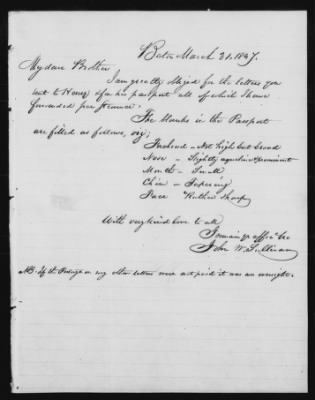 Boston March 21. 1847.
My dear Brother
I am greatly obliged for the letters you
sent to Henry & for his passport all of which I have
forwarded per steamer.
The blanks in the Passport
are filled as follows, viz;
Forehead – Not high but broad
Nose – Slightly aquiline & prominent
Mouth – Small
Chin – Tapering
Face Rather Sharp
With very kind love to all
I remain yr affte Br
John W.
NB. If the Postage on my other letters were not paid it was an oversight.